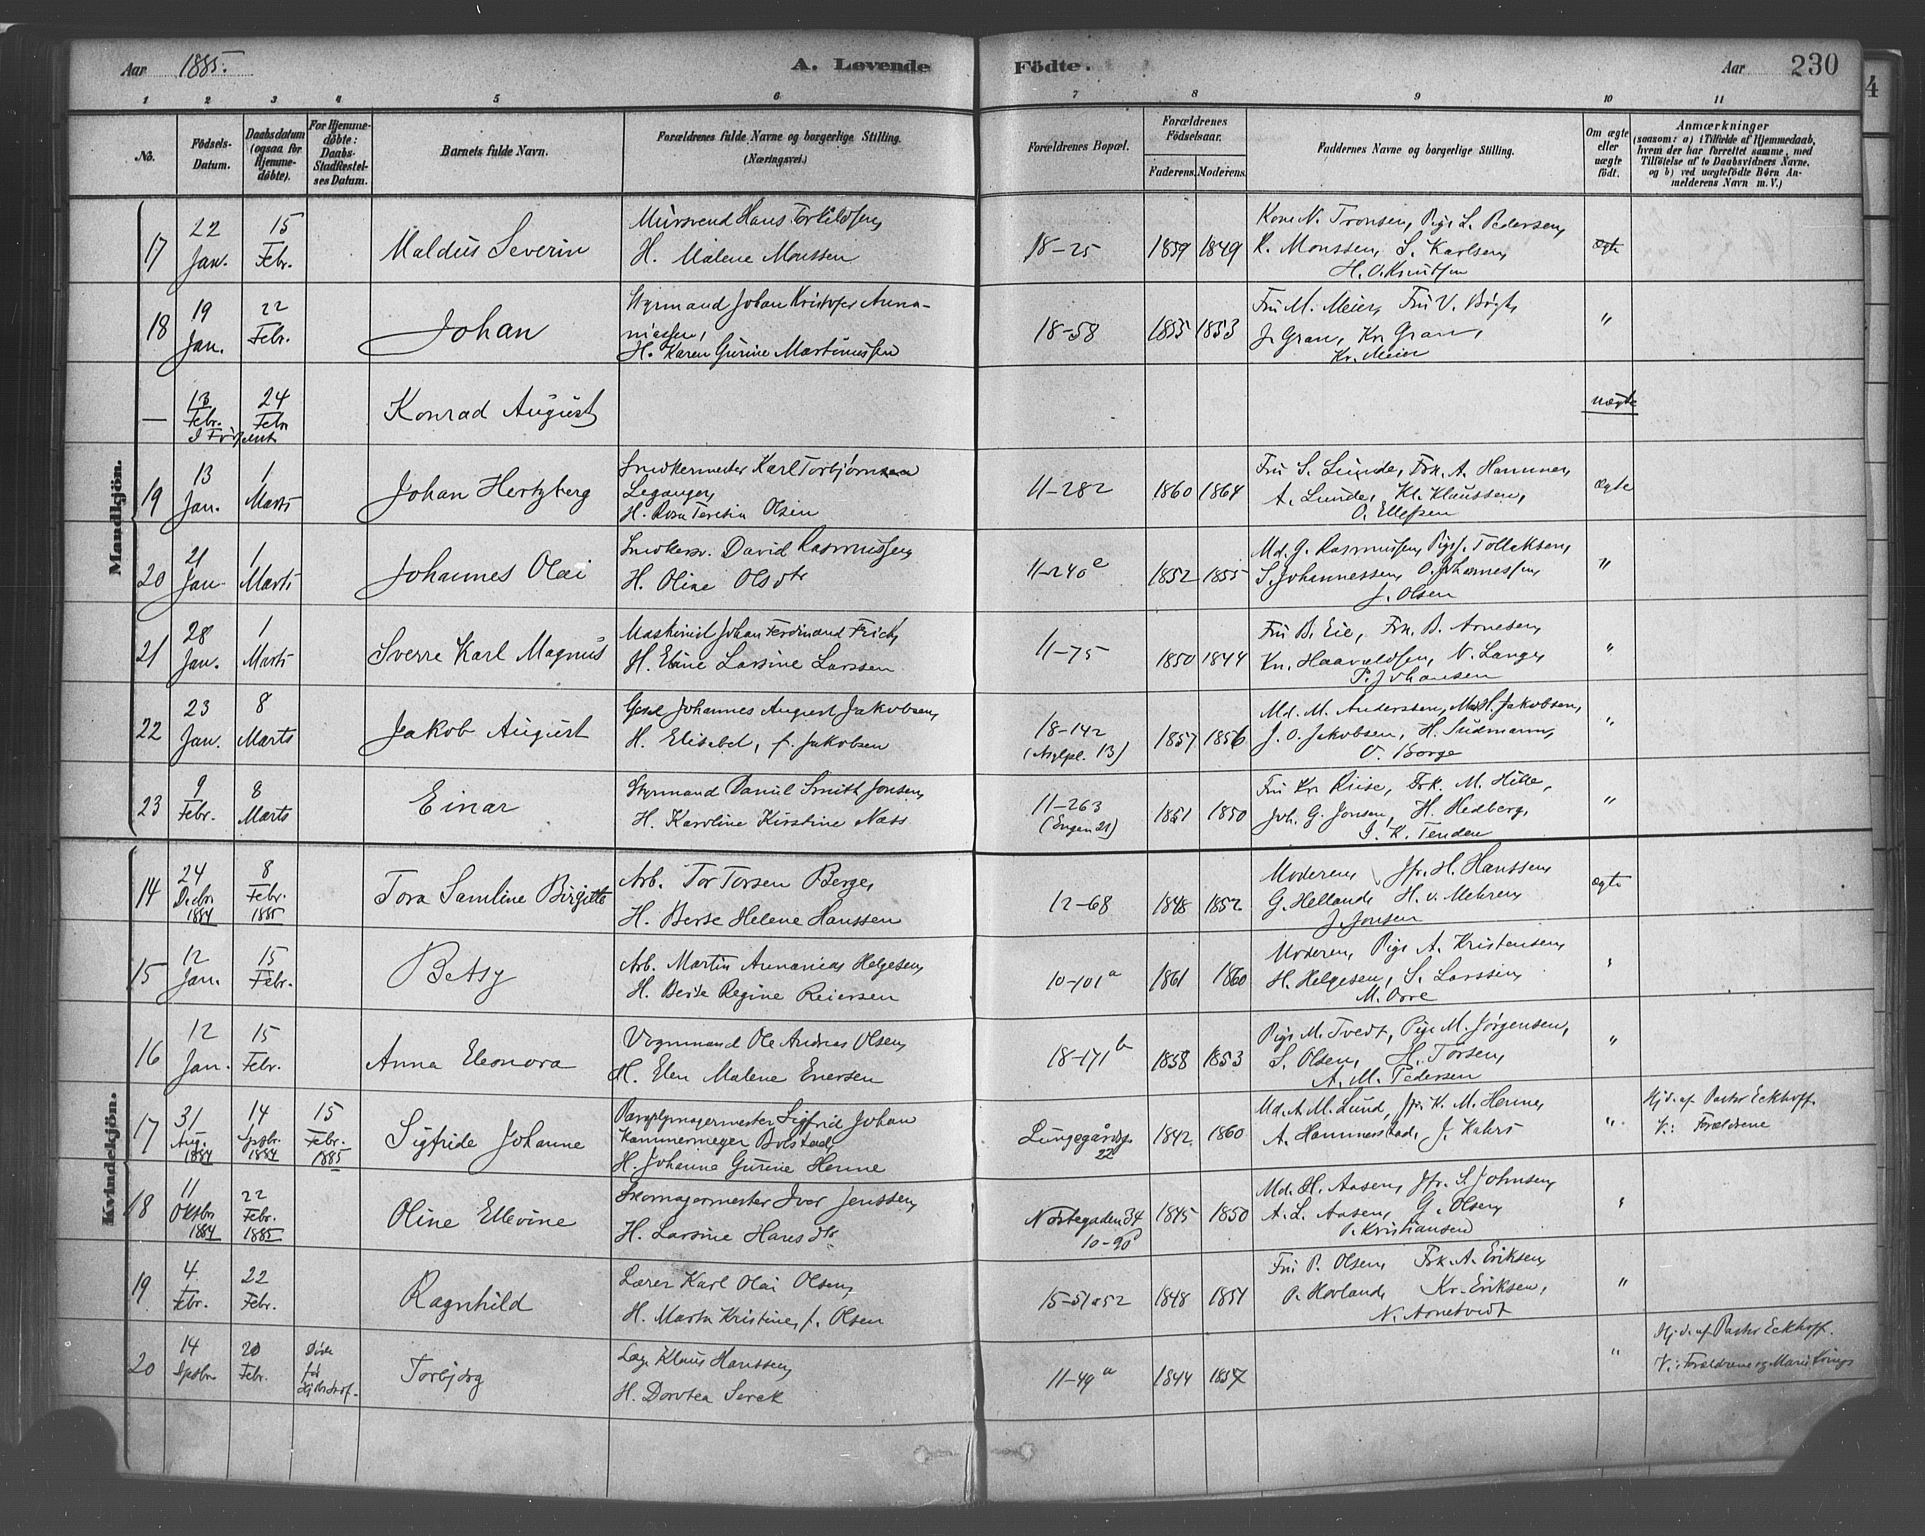 Aar 1885. A. Levende Födte. Aar 230
4
1 2 3 4 5 6 7 8 9 10 11
No.
Födsels-Datum.
Daabsdatum (ogsaa for Hjemme-döbte).
For Hjemme-döbte: Daabs-Stadfæstel-ses Datum.
Barnets fulde Navn.
Forældrenes fulde Navne og borgerlige Stilling. (Næringsvei.)
Forældrenes Bopæl.
Forældrenes Födselsaar.
Faderens. Moderens.
Faddernes Navne og borgerlige Stilling.
Om ægte eller uægte födt.
Anmærkninger
(saasom: a) i Tilfælde af Hjemmedaab,
hvem der har forrettet samme, med
Tilföielse af to Daabsvidners Navne,
og b) ved uægtefödte Börn An-
melderens Navn m. V.)
Mandkjön.
17 22 Jan. 15 Febr. Maldus Severin
Mursvend Hans Torkildsen,
H. Malene Monssen
18-25 1859 1849
Kone N. Tronsen, Pige L. Pedersen,
R. Monssen, S. Karlsen,
H. O. Knutsen
ægte
18 19 Jan. 22 Febr. Johan
Styrmand Johan Kristofer Anna-
niassen,
H. Karen Gurine Martinussen
18-58 1855 1853
Fru M. Meier, Fru V. Bøgh,
J. Gran, Kr. Gran,
Kr. Meier
"
— 13 Febr. 24 Febr. Konrad August
uægte
19 13 Jan. 1 Marts Johan Hertzberg
Snedkermester Karl Torbjørnsen
Leganger,
H. Rosa Teresia Olsen
11-282 1860 1864
Fru S. Lunde, Frk. A. Hammer,
A. Lunde, Kl. Klaussen,
O. Ellefsen
ægte
20 21 Jan. 1 Marts Johannes Olai
Snedkersv. David Rasmussen,
H. Oline Olsdtr
11-240 e 1852 1855
Md. G. Rasmussen, Pige J. Tolleksen,
S. Johannessen, O. Johannessen,
J. Olsen
"
21 28 Jan. 1 Marts Sverre Karl Magnus
Maskinist Johan Ferdinand Frich,
H. Eline Larsine Larssen
11-75 1850 1844
Fru B. Eie, Frk. B. Arnesen,
Kn. Haavaldsen, N. Lange,
P. Johansen
"
22 23 Jan. 8 Marts Jakob August
Gesel Johannes August Jakobsen,
H. Elisabet, f. Jakobsen
18-142
(Asylpl. 13) 1857 1856
Md. M. Anderssen, Md. H. Jakobsen,
J. O. Jakobsen, H. Sudmann,
O. Borge
"
23 9 Febr. 8 Marts Einar
Styrmand Daniel Smith Jonsen,
H. Karoline Kirstine Næss
11-263
(Engen 21) 1851 1850
Fru Kr. Riise, Frk. M. Hille,
Joh. G. Jonsen, H. Hedberg,
J. K. Tenden
"
Kvindekjön.
14 24 Decbr. 1884 8 Febr. 1885 Tora Samline Birgitte
Arb. Tor Torsen Berge,
H. Berte Helene Hanssen
12-68 1848 1852
Moderen, Jfr. H. Hanssen,
G. Helland, H. v. Mehren,
J. Jonsen
ægte
15 12 Jan. 15 Febr. Betsy
Arb. Martin Annanias Helgesen,
H. Berte Regine Reiersen
10-101 a 1861 1860
Moderen, Pige A. Kristensen,
H. Helgesen, S. Larssen,
M. Orre
"
16 12 Jan. 15 Febr. Anna Eleonora
Vognmand Ole Andreas Olsen,
H. Elen Malene Enersen
18-171 b 1858 1853
Pige M. Tvedt, Pige M. Jørgensen,
S. Olsen, H. Torsen,
A. M. Pedersen
"
17 31 Aug. 1884 14 Spbr. 1884 15 Febr. 1885 Sigfride Johanne
Paraplymagermester Sigfrid Johan
Kammermeyer Bolstad,
H. Johanne Gurine Henne
Lungegårdsg.
22 1842 1860
Md. A. M. Lund, Jfr. K. M. Henne,
A. Hammerstad, J. Kahrs
"
Hjd. af Pastor Eckhoff.
V.: Forældrene
18 11 Oktbr. 1884 22 Febr. 1885 Oline Ellevine
Skomagermester Iver Jenssen,
H. Larsine Hansdtr
Nøstegaden 34
10-90 1845 1850
Md. H. Aasen, Jfr. S. Johnsen,
A. L. Aasen, G. Olsen,
P. Kristiansen
"
19 4 Febr. 22 Febr. Ragnhild
Lærer Karl Olai Olsen,
H. Marta Kristine, f. Olsen
15-51 o 52 1848 1851
Fru P. Olsen, Frk. A. Eriksen,
P. Hovland, Kr. Eriksen,
N. Arnetvedt
"
20 14 20 Febr. Torbjørg
Læge Klaus Hanssen,
H. Dorotea Serck
11-49 a 1844 1857
"
Hjd. af Pastor Eckhoff.
V.: Forældrene og Marie